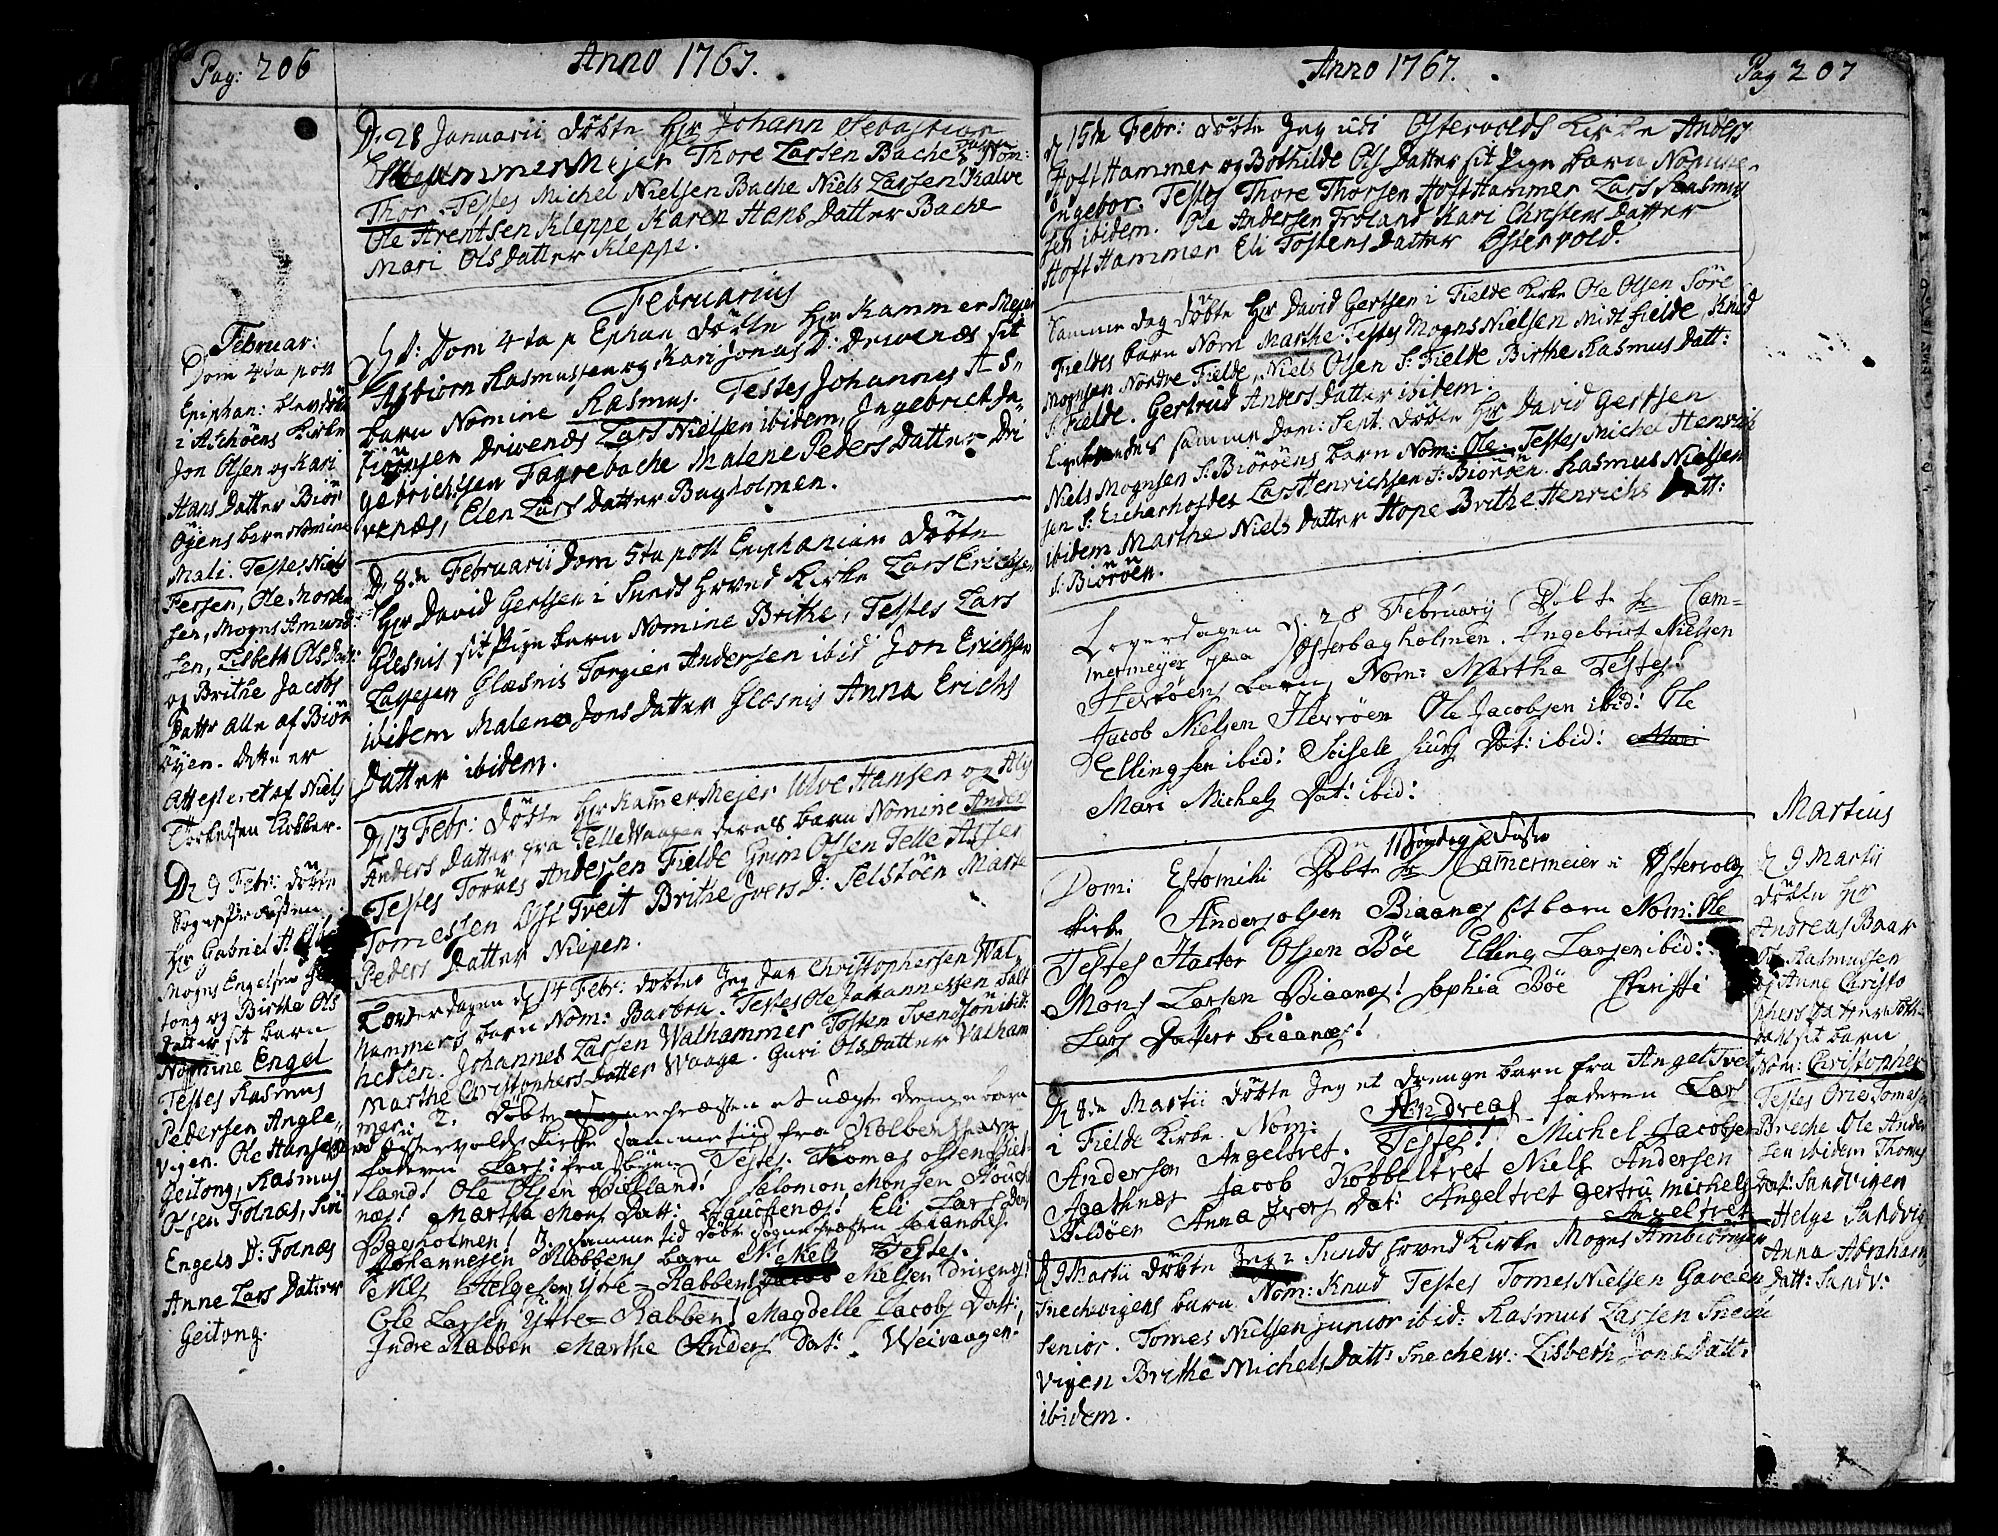 Pag: 206
Anno 1767.
D. 28 Januarii döbte Hr Johann Sebastian
Cammermejer Thore Larsen Baches barn Nom:
Thor. Testes Michel Nielsen Bache Niels Larsen Kalve
Ole Arentsen Kleppe Karen Hans Datter Bache
Mari Ols Datter Kleppe.
Februarius
D. 1: Dom 4ta p Ephan döbte Hr Kammer Mejer
Asbiörn Rasmussen og Kari Jonas D: Drivenæs sit
barn Nomine Rasmus. Testes Johannes As-
biörnsen Drivenæs Lars Nielsen ibidem, Ingebricht In-
gebrichtsen Fagrebache Malene Peders Datter Dri
venæs, Elen Lars Datter Bagholmen.
D. 8de Februarii Dom 5ta post Epiphaniam döbte
Hr David Gertsen i Sunds Hoved Kirke Lars Erichsen
Glesnis sit Pige barn Nomine Brithe, Testes Lars
Larsen Glæsnis Torgier Andersen ibid Jon Erichsen
ibidem Malene Jons Datter Glæsnis Anna Erichs
Datter ibidem.
D. 13 Febr: döbte Hr Kammer Mejer Ulve Hansen og
Anders Datter fra Telle Waagen deres barn Nomine Anders
Testes Torres Andersen Fielde Grim Olsen Telle
Tomessen Ost Tveit Brithe Ivers D: Selstöen Marta
Peders Datter Niepen.
Löverdagen d. 14 Febr: döbte Jeg Jan Christophersen Wal-
hammers barn Nom: Barbra. Testes Ole Johannessen Salt
hellen. Johannes Larsen Walhammer Tosten Svendsön ibid:
Marthe Christophers Datter Waage. Guri Ols Datter Valham
mer. 2. döbte Sognepræsten et uægte drenge barn
i Ostervolds Kirke samme tiid fra Kolbens
faderen Lars: fra byen Testes. Thomas olsen
land! Ole Olsen Biolland! Salomon Monsen
næs! Martha Mons Datt: Hauchenæs! Eli Lars Dat
Bagholmen! 3. samme tid döbt sognepræsten Johannes
Johannesen Rabbens barn N: Nels Testes.
Nels Helgesen Ytre-Rabben! Nielsen drivenæs!
Ole Larsen Yttre-Rabben! Magdelle Jacobs Datt:
Indre Rabben Marthe Anders Dat: Weivaagen!
Februar:
Dom 4ta post
Epiphan: blev döbt
i Aschöens Kirke
Jon Olsen og Kari
Hans Datter Biör
öyens barn nomine
Mali. Testes Niels
Persen, Ole Morten
sen, Mogns Amund
sen, Lisbeth Ols Datt
og Brithe Jacobs
Datt alle af Biör
öyen. dette er
Attesteret af Niels
Torkelsen Klokker.
D. 9 Febr: döbte
Sognepræsten
Hr Gabriel
Mogns Engelsen
tong og Birthe Ols
Datter sit barn
Nomine Engel
Testes Rasmus
Pedersen Angle-
vigen. Ole Hansen
Geitong, Rasmus
Olsen Folnæs, Siri
Engels D: Folnæs
Anne Lars Datter
Geitong.
Anno 1767.
Pag 207
d 15de Febr: döbte Jeg udi Ostervolds Kirke Anders
Hoft Hammer og Bothilde Ols Datter sit Pige barn Nomine
Ingebor. Testes Thore Thorsen Hoft Hammer Lars Rasmus-
sen ibidem. Ole Andersen Froland Kari Christens Datter
Hoft Hammer Eli Tostens Datter Ostervold.
Samme dag döbte Hr David Gertsen i Fielde Kirke Ole Olsen Söre
Fieldes barn Nom Marthe Testes Mogns Nielsen Midt Fielde, Knud
Mognsen Nordre Fielde, Niels Olsen S: Fielde Birthe Rasmus Datt:
S: Fielde. Gertrud Anders Datter ibidem.
Ligeledes samme Dom: Sept. döbte Hr David Gertsen
Niels Mognsen S: Biöröens barn Nom: Ole. Testes Michel Henrich
sen S: Eicherhofdes Lars Henrichsen S: Biöröen. Rasmus Nielsen
ibidem Marthe Niels Datter Hope Brithe Henrichs Datt:
S: Biöröen.
Löverdagen d. 28 February Döbte Hr Cam-
mermeyer paa Österbagholmen. Ingebrict Nielsen
Herröens barn, Nom: Martha Testes!
Jacob Nielsen Herröen Ole Jacobsen ibid: Ole
Ellingsen ibid: Seisele Lars Dat: ibid: Mari
Mari Michels Dat: ibid:
1 Söndag i Faste
Dom: Estomihi Döbte Hr Camermeier i Ostervolds
Kirke Anders olsen Biaanæs sit barn Nom: Ole
Testes Hactor Olsen Böe Elling Larsen ibid:
Mons Larsen Biaanæs! Sophia Böe Christi
Lars Datter biaanæs!
D. 8de Martii döbte Jeg et drenge barn fra Angel Tvet
i Fielde Kirke. Nom: Andreas faderen Lars
Andersen Angeltvet. Testes! Michel Jacobsen
Agathnæs Jacob Kobbeltvet Niels Andersen
Bildöen Anna Ivers Dat: Angeltvet gertru michels
Angeltvet
D. 9 Martii döbte Jeg i Sunds hoved Kirke Mogns Ambiörnsen
Snechvigens barn Nom: Knud Testes Tomes Nielsen Gaveen
Senior. Tomes Nielsen junior ibid: Rasmus Larsen Snech
vigen Brithe Michels Datt: Snechew: Lisbeth Jons Datt:
ibidem.
Martius
D. 9 Martii
döbte Hr
Andreas Baar
Ole Rasmussen
og Anne Christo
phers Datter
sit barn
Nom: Christopher
Testes Brie Tomes
Breche Ole Ander
sen ibidem Thomas
Dat: Sandvigen
Helge Sandvig
Anna Abraham
Datt: Sandv: